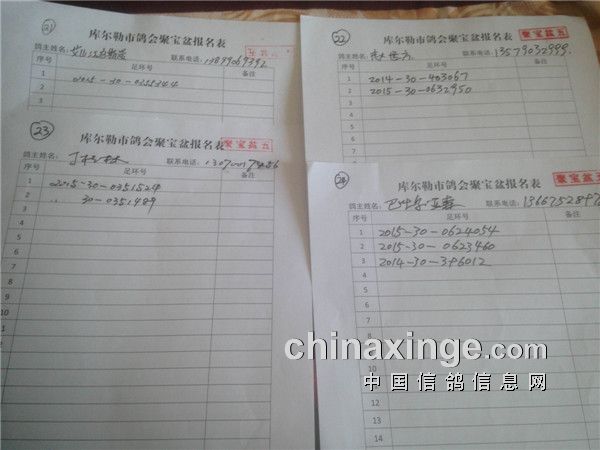 21
库尔勒市鸽会聚宝盆报名表
鸽主姓名: 联系电话: 13899069392
序号 足环号 备注
1 2015-30-0355344
2
3
22
库尔勒市鸽会聚宝盆报名表
聚宝盆五
鸽主姓名: 联系电话: 13579032999
序号 足环号 备注
1 2014-30-403067
2 2015-30-0632950
3
4
5
6
7
23
库尔勒市鸽会聚宝盆报名表
聚宝盆五
鸽主姓名: 联系电话:
序号 足环号 备注
1 2015-30-0351524
2 〃 30-0351489
3
4
5
6
7
8
9
10
11
12
13
14
24
聚宝盆五
库尔勒市鸽会聚宝盆报名表
鸽主姓名: 联系电话:
序号 足环号 备注
1 2015-30-0624054
2 2015-30-0623460
3 2014-30-396012
4
5
6
7
8
9
10
11
12
13
14
chinaxinge.com
中国信鸽信息网